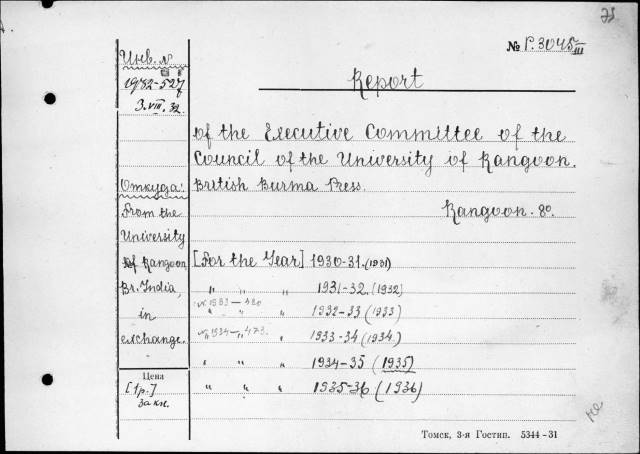 75
№ Р. 3045/III
Инв. №
1932-527
3.VIII.32
Report
of the Executive Committee of the
Council of the University of Rangoon.
British Burma Press.
Rangoon. 8º.
Откуда:
From the
University
of Rangoon
Br. India,
in
exchange.
[For the Year] 1930-31. (1931)
" " " 1931-32. (1932)
№ 1933-420
" " " 1932-33 (1933)
№ 1934-473.
" 1933-34 (1934.)
" " " 1934-35 (1935)
" " " 1935-36 (1936)
Цена
[1р.]
За кн.
Томск, 3-я Гостип. 5344-31